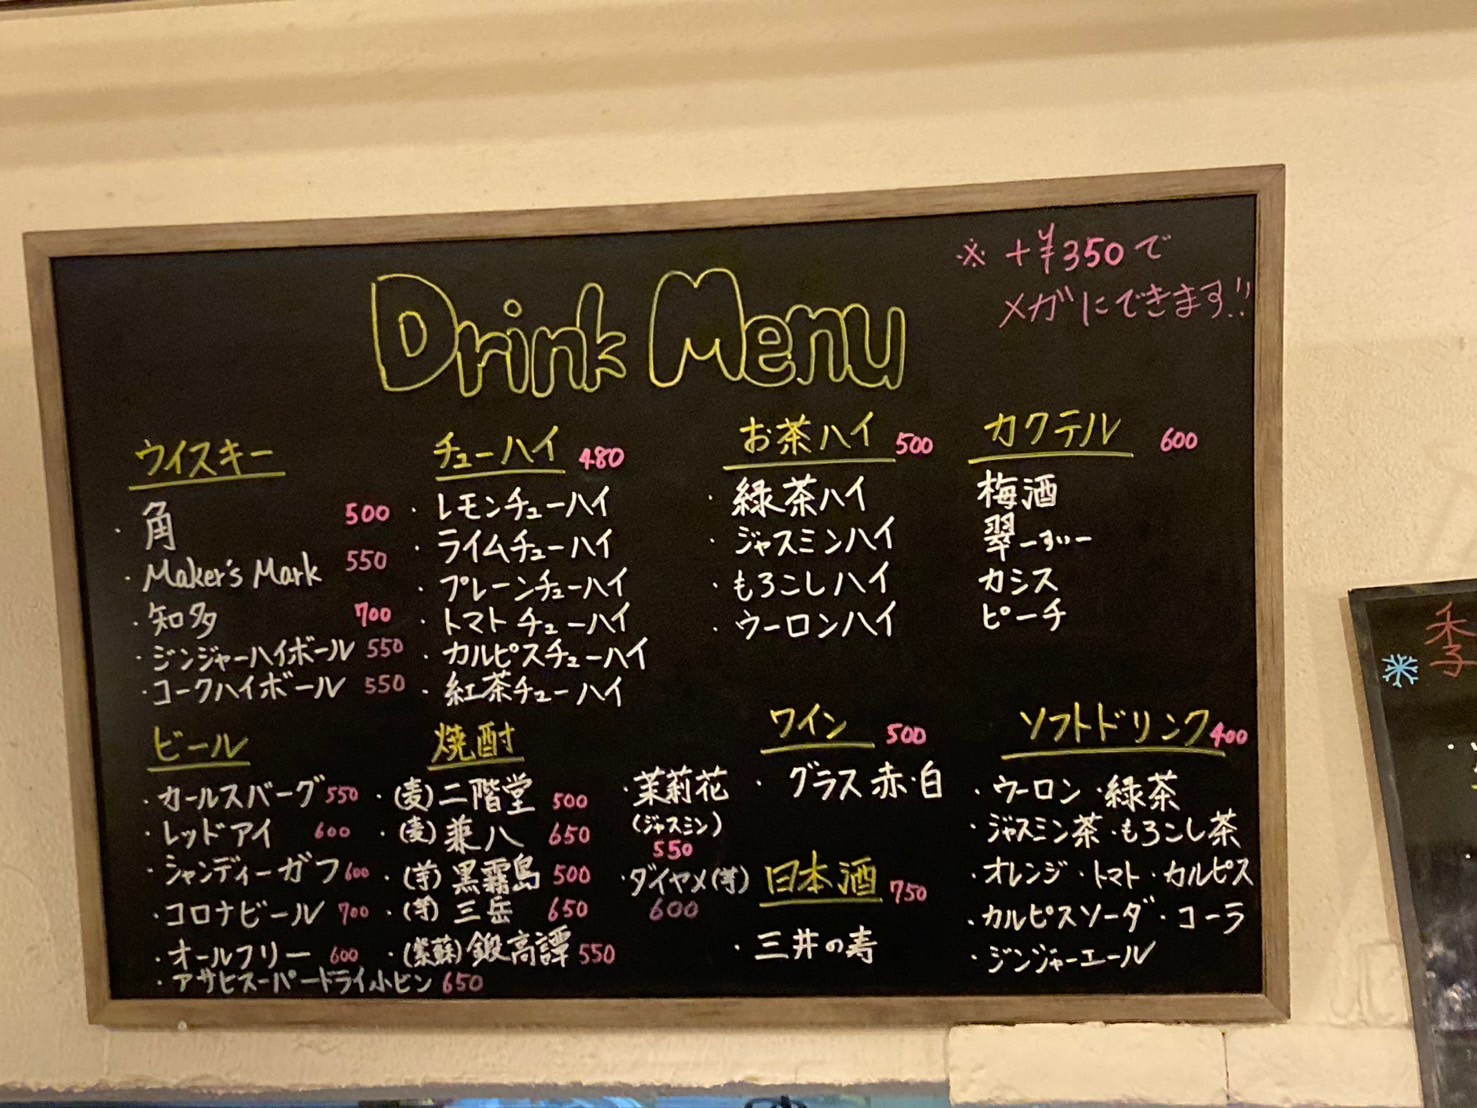 ※ +¥350で
メガにできます!!
Drink Menu
ウイスキー
・角 500
・Maker's Mark 550
・知多 700
・ジンジャーハイボール 550
・コークハイボール 550
チューハイ 480
・レモンチューハイ
・ライムチューハイ
・プレーンチューハイ
・トマトチューハイ
・カルピスチューハイ
・紅茶チューハイ
お茶ハイ 500
・緑茶ハイ
・ジャスミンハイ
・もろこしハイ
・ウーロンハイ
カクテル 600
梅酒
翠ーすいー
カシス
ピーチ
ビール
・カールスバーグ 550
・レッドアイ 600
・シャンディーガフ 600
・コロナビール 700
・オールフリー 600
・アサヒスーパードライ小ビン 650
焼酎
・(麦)二階堂 500
・(麦)兼八 650
・(芋)黒霧島 500
・(芋)三岳 650
・(紫蘇)鍛高譚 550
・茉莉花
(ジャスミン)
550
・ダイヤメ(芋)
600
ワイン 500
・グラス 赤・白
日本酒 750
・三井の寿
ソフトドリンク 400
・ウーロン・緑茶
・ジャスミン茶・もろこし茶
・オレンジ・トマト・カルピス
・カルピスソーダ・コーラ
・ジンジャーエール
季